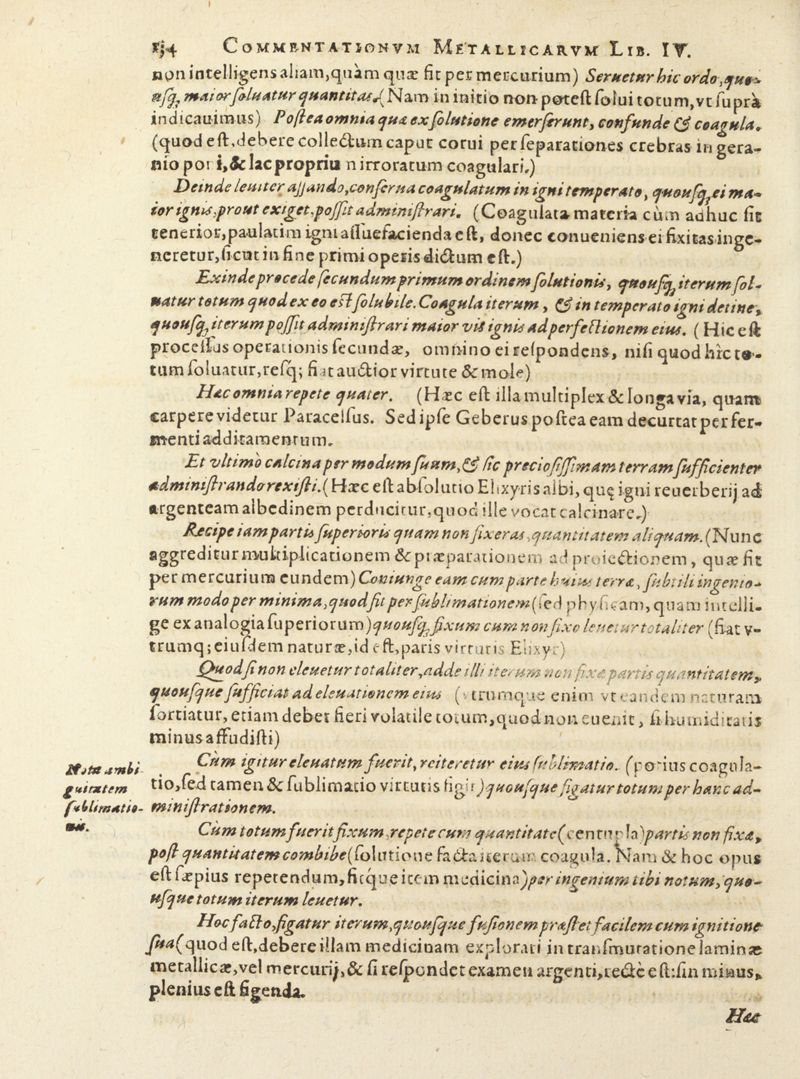 154 COMMENTATIONVM METALLICARVM LIB. IV.
non intelligens aliam, quàm quæ fit per mercurium) Seruetur hic ordo, quo-
usq; maior soluatur quantitas. (Nam in initio non potest solui totum, vt suprà
indicauimus) Postea omnia quæ ex solutione emerserunt, confunde & coagula.
(quod est, debere collectum caput corui per separationes crebras in gera-
nio pori, & lac propriū irroratum coagulari.)
Deinde leuiter assando, conserua coagulatum in igni temperato, quousq; ei ma-
ior ignis, prout exiget, possit administrari. (Coagulata materia cùm adhuc sit
tenerior, paulatim igni assuefacienda est, donec conueniens ei fixitas inge-
neretur, sicut in fine primi operis dictum est.)
Exinde procede secundum primum ordinem solutionis, quousq; iterum sol-
uatur totum quod ex eo est solubile. Coagula iterum, & in temperato igni detine,
quousq; iterum possit administrari maior vis ignis ad perfectionem eius. (Hic est
processus operationis secundæ, omnino ei respondens, nisi quod hîc to-
tum soluatur, resq; fiat auctior virtute & mole)
Hæc omnia repete quater. (Hæc est illa multiplex & longa via, quam
carpere videtur Paracelsus. Sed ipse Geberus postea eam decurtat per fer-
menti additamentum.
Et vltimò calcina per modum suum, & sic preciosissimam terram sufficienter
administrando rexisti. (Hæc est absolutio Elixyris albi, quę igni reuerberij ad
argenteam albedinem perducitur, quod ille vocat calcinare.)
Recipe iam partis superioris quam non fixeras, quantitatem aliquam. (Nunc
aggreditur multiplicationem & præparationem ad proiectionem, quæ fit
per mercurium eundem) Coniunge eam cum parte huius terræ, subtili ingenio-
rum modo per minima, quod fit per sublimationem (sed physicam, quam intelli-
ge ex analogia superiorum) quousq; fixum cum non fixo leuetur totaliter (fiat v-
trumq; eiusdem naturæ, id est, paris virtutis Elixyr)
Quod si non eleuetur totaliter, adde illi iterum non fixæ partis quantitatem,
quousque sufficiat ad eleuationem eius (vtrumque enim vt eandem naturam
sortiatur, etiam debet fieri volatile totum, quod non euenit, si humiditatis
minus affudisti)
Cùm igitur eleuatum fuerit, reiteretur eius sublimatio. (potius coagula-
tio, sed tamen & sublimatio virtutis sigit) quousque figatur totum per hanc ad-
ministrationem.
Nota ambi
guitatem
sublimatio-
nis.
Cùm totum fuerit fixum, repete cum quantitate (centupla) partis non fixæ,
post quantitatem combibe (solutione facta iterum coagula. Nam & hoc opus
est sæpius repetendum, sitque item medicina) per ingenium tibi notum, quo-
usque totum iterum leuetur.
Hoc facto, figatur iterum, quousque fusionem præstet facilem cum ignitione
sua (quod est, debere illam medicinam explorari in transmutatione laminæ
metallicæ, vel mercurij, & si respondet examen argenti, rectè est: sin minus,
plenius est figenda.
Hæc